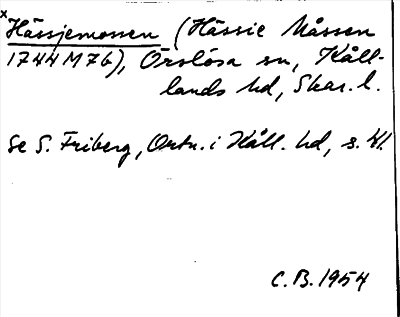 x Hässjemossen (Hässie Måssen
1744 M76), Örslösa sn, Kåll-
lands hd, Skar. l.
Se S. Friberg, Ortn. i Kåll. hd, s. 41.
C.B. 1954